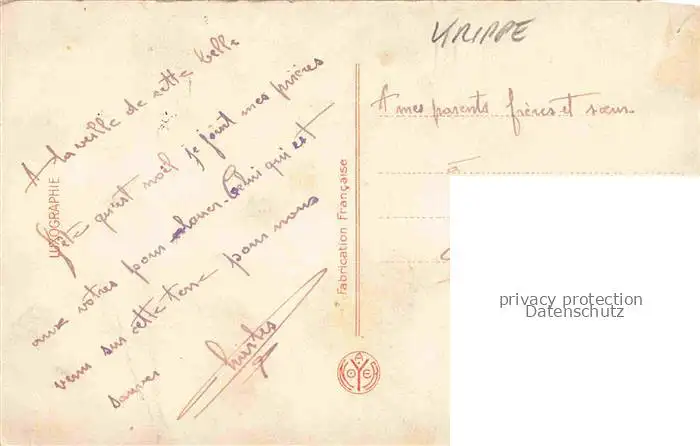 KRIPPE
A la veille de cette belle
fête qu'est noël je joint mes prières
aux vôtres pour louer Celui qui est
venu sur cette terre pour nous
sauver
A mes parents frères et sœur
LUXOGRAPHIE
Fabrication Française
privacy protection
Datenschutz